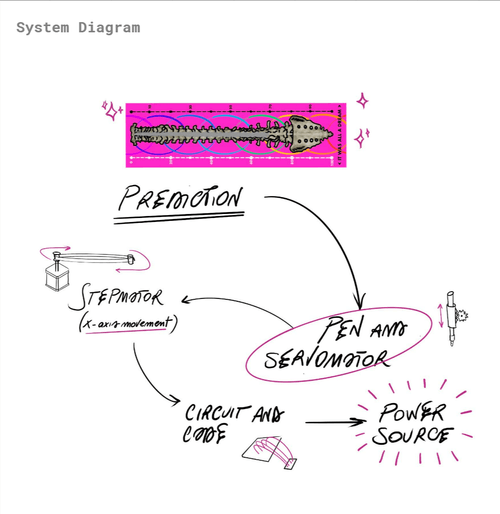 System Diagram
* IT WAS ALL A DREAM *
PREDICTION
STEPMOTOR
(X-axis movement)
PEN AND
SERVOMOTOR
CIRCUIT AND
CODE
POWER
SOURCE